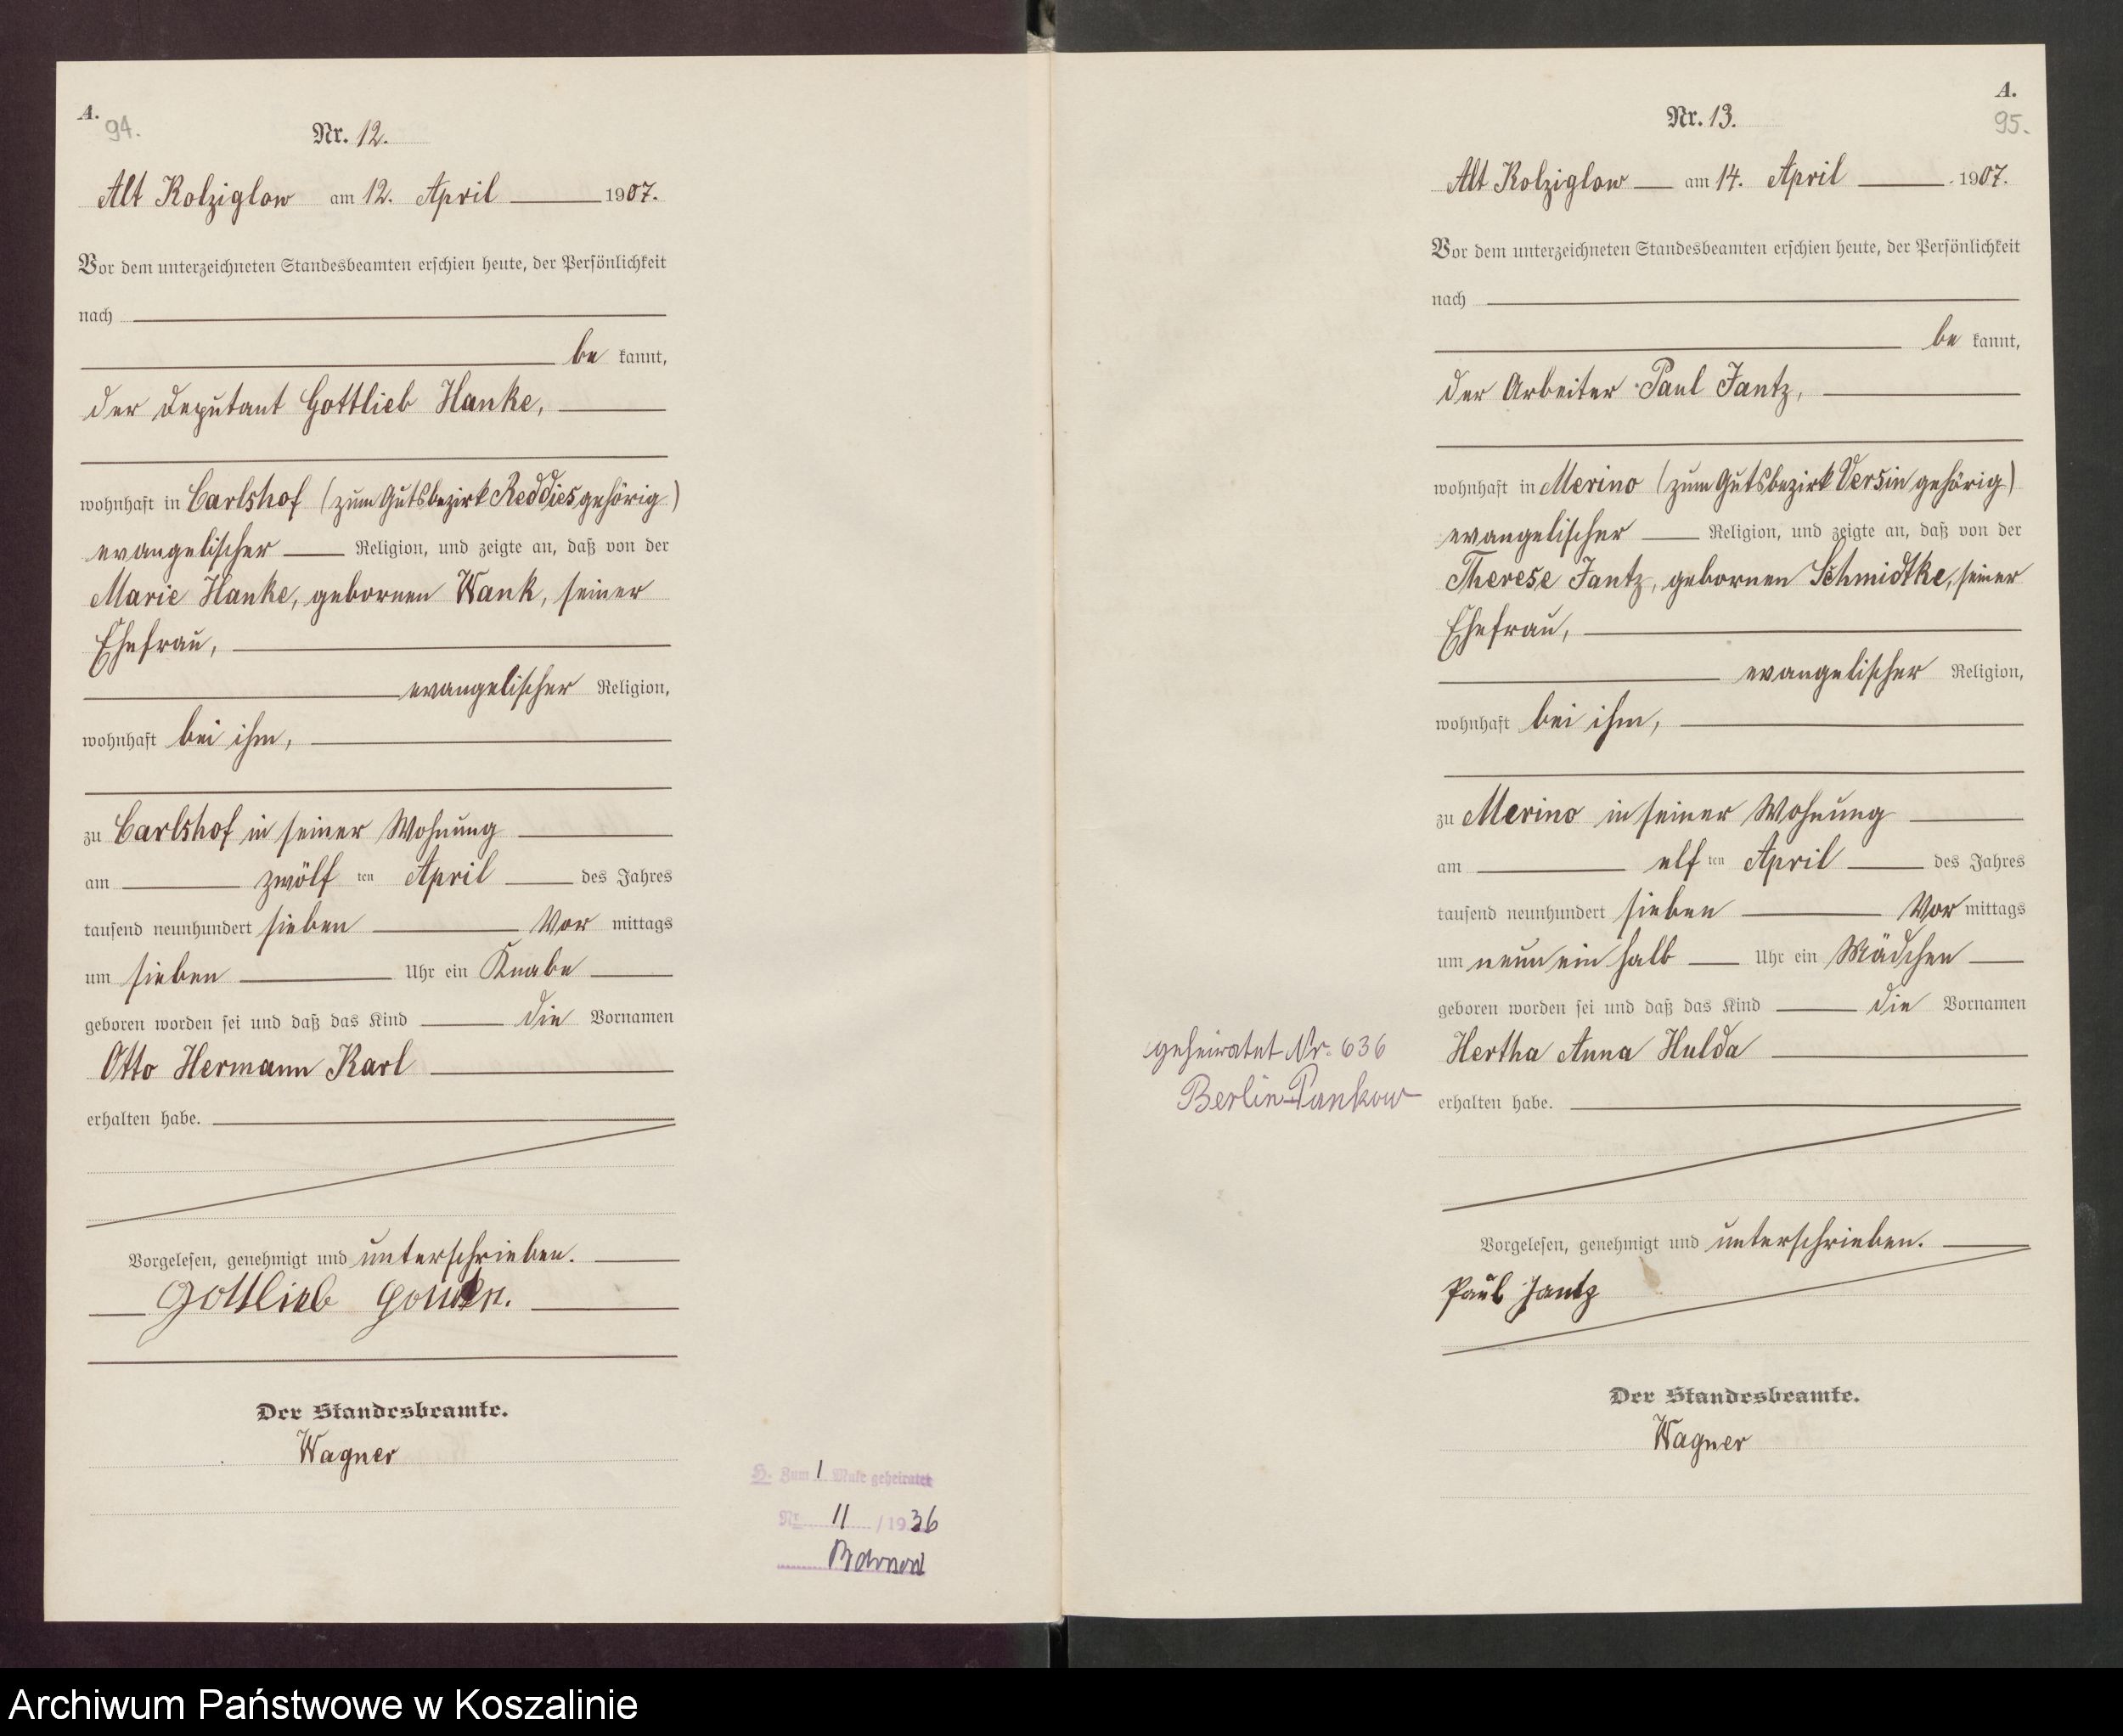 A.
94.
Nr. 12.
Alt Kolziglow am 12. April 1907.
Vor dem unterzeichneten Standesbeamten erschien heute, der Persönlichkeit
nach
be kannt,
der Deputant Gottlieb Hanke,
wohnhaft in Carlshof (zum Gutsbezirk Reddies gehörig)
evangelischer Religion, und zeigte an, daß von der
Marie Hanke, gebornen Wank, seiner
Ehefrau,
evangelischer Religion,
wohnhaft bei ihm,
zu Carlshof in seiner Wohnung
am zwölf ten April des Jahres
tausend neunhundert sieben Vor mittags
um sieben Uhr ein Knabe
geboren worden sei und daß das Kind die Vornamen
Otto Hermann Karl
erhalten habe.
Vorgelesen, genehmigt und unterschrieben.
Gottlieb
Der Standesbeamte.
Wagner
H. Zum 1 Male geheiratet
Nr. 11 / 1936
A.
95.
Nr. 13.
Alt Kolziglow am 14. April 1907.
Vor dem unterzeichneten Standesbeamten erschien heute, der Persönlichkeit
nach
be kannt,
der Arbeiter Paul Jantz,
wohnhaft in Merino (zum Gutsbezirk Versin gehörig)
evangelischer Religion, und zeigte an, daß von der
Therese Jantz, gebornen Schmidtke, seiner
Ehefrau,
evangelischer Religion,
wohnhaft bei ihm,
zu Merino in seiner Wohnung
am elf ten April des Jahres
tausend neunhundert sieben Vor mittags
um neun ein halb Uhr ein Mädchen
geboren worden sei und daß das Kind die Vornamen
Hertha Anna Hulda
erhalten habe.
geheiratet Nr. 636
Berlin-Pankow
Vorgelesen, genehmigt und unterschrieben.
Paul Jantz
Der Standesbeamte.
Wagner
Archiwum Państwowe w Koszalinie